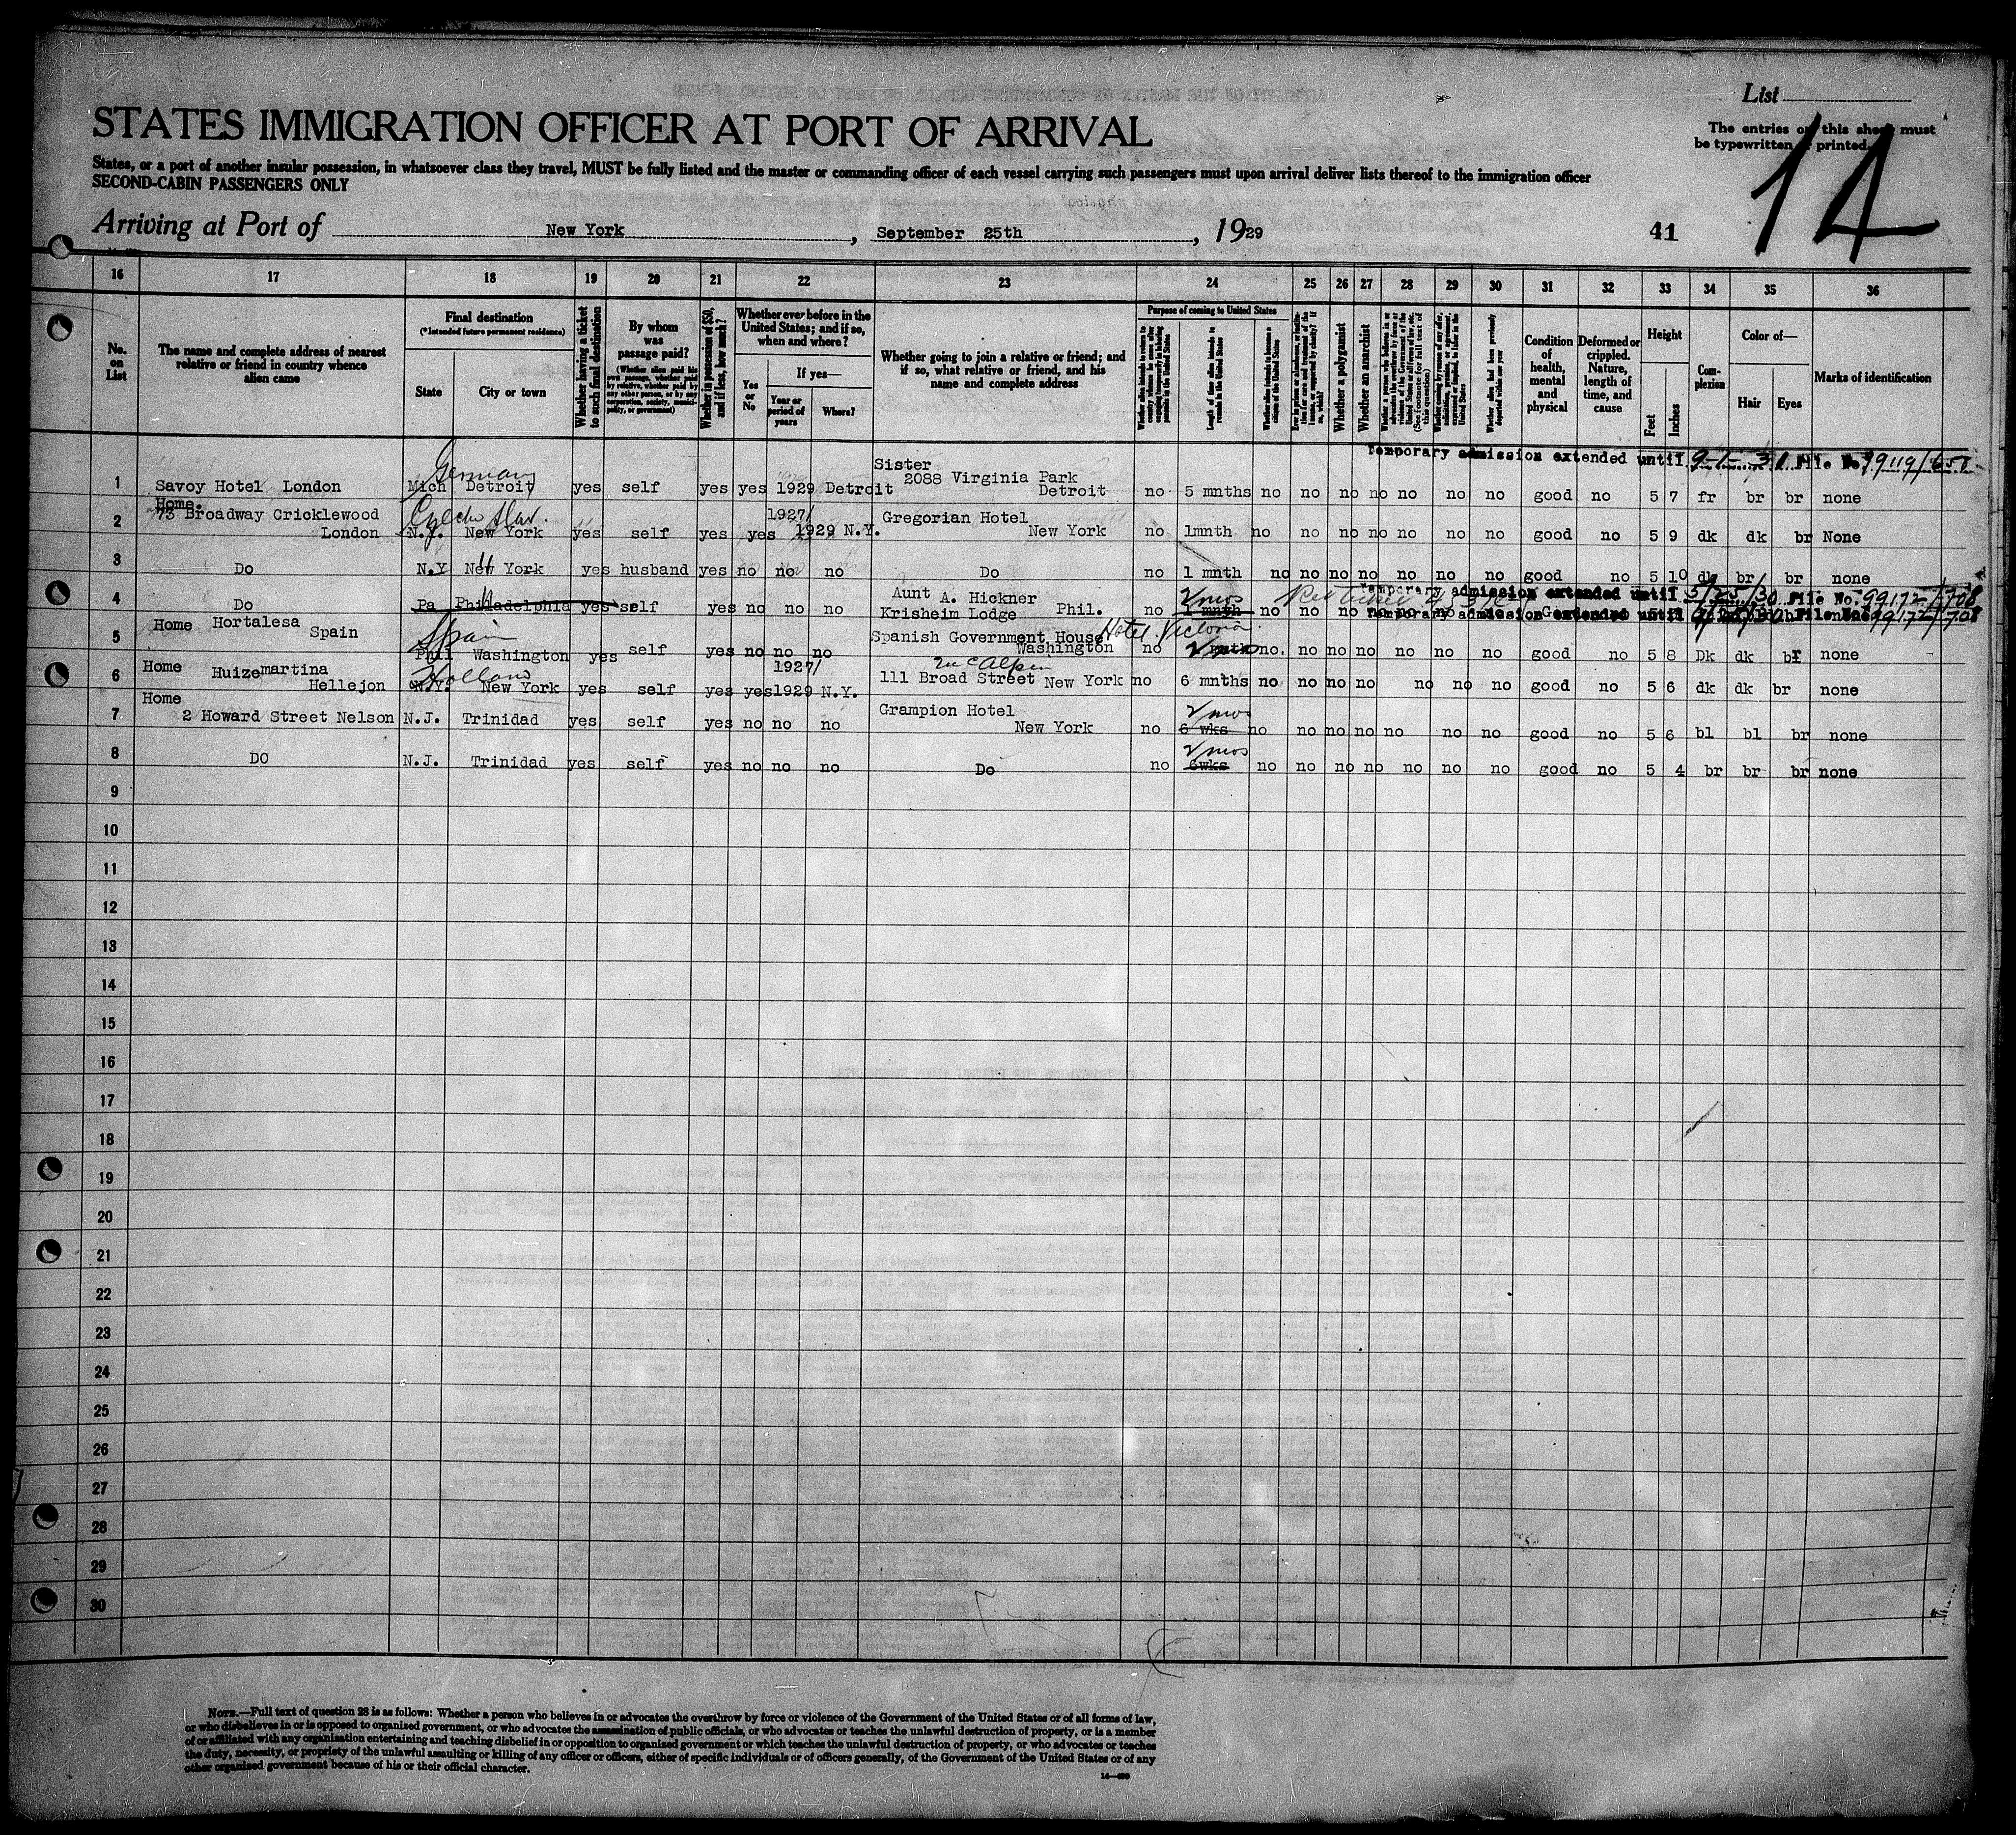 List
STATES IMMIGRATION OFFICER AT PORT OF ARRIVAL
The entries on this sheet must
be typewritten or printed.
14
States, or a port of another insular possession, in whatsoever class they travel, MUST be fully listed and the master or commanding officer of each vessel carrying such passengers must upon arrival deliver lists thereof to the immigration officer
SECOND-CABIN PASSENGERS ONLY
Arriving at Port of New York, September 25th, 1929 41
16 17 18 19 20 21 22 23 24 25 26 27 28 29 30 31 32 33 34 35 36
No. on List
The name and complete address of nearest relative or friend in country whence alien came
Final destination
(*Intended future permanent residence)
State
City or town
Whether having a ticket to such final destination
By whom was passage paid?
(Whether alien paid his own passage, whether paid by relative, whether paid by any other person, or by any corporation, society, municipality, or government)
Whether in possession of $50, and if less, how much?
Whether ever before in the United States; and if so, when and where?
Yes or No
If yes—
Year or period of years
Where?
Whether going to join a relative or friend; and if so, what relative or friend, and his name and complete address
Purpose of coming to United States
Length of time alien intends to remain in the United States
Whether alien intends to become a citizen of the United States
Whether a polygamist
Whether an anarchist
(See footnote for full text of this question)
Whether alien had been previously deported within one year
Condition of health, mental and physical
Deformed or crippled. Nature, length of time, and cause
Height
Feet
Inches
Complexion
Color of—
Hair
Eyes
Marks of identification
Temporary admission extended until 9-1-31 File No.
Germany
Sister
1 Savoy Hotel London Mich Detroit yes self yes yes 1929 Detroit 2088 Virginia Park Detroit no 5 mnths no no no no no no no good no 5 7 fr br br none
Home.
Czecho Slav.
2 73 Broadway Cricklewood London N.Y. New York yes self yes yes 1927/1929 N.Y. Gregorian Hotel New York no 1mnth no no no no no no no good no 5 9 dk dk br None
3 Do N.Y New York yes husband yes no no no Do no 1 mnth no no no no no no no good no 5 10 dk br br none
Temporary admission extended until 5/25/30 File No. 99172/708
4 Do Pa Philadelphia yes self yes no no no Aunt A. Hickner Krisheim Lodge Phil. no 2 mos 1 mnth no no no
Temporary admission extended until File No. 99172/708
Spain
Hotel Victoria
5 Home Hortalesa Spain Phil Washington yes self yes no no no Spanish Government House Washington no no. no no no no no no good no 5 8 Dk dk br none
Holland
McAlpin
6 Home Huizemartina Hellejon N.Y. New York yes self yes yes 1927/1929 N.Y. 111 Broad Street New York no 6 mnths no no no no no no no good no 5 6 dk dk br none
7 Home 2 Howard Street Nelson N.J. Trinidad yes self yes no no no Grampion Hotel New York no 2 mos 6 wks no no no no no no no good no 5 6 bl bl br none
8 DO N.J. Trinidad yes self yes no no no Do no 2 mos 6wks no no no no no no no good no 5 4 br br br none
9
10
11
12
13
14
15
16
17
18
19
20
21
22
23
24
25
26
27
28
29
30
NOTE.—Full text of question 28 is as follows: Whether a person who believes in or advocates the overthrow by force or violence of the Government of the United States or of all forms of law,
or who disbelieves in or is opposed to organized government, or who advocates the assassination of public officials, or who advocates or teaches the unlawful destruction of property, or is a member
of or affiliated with any organization entertaining and teaching disbelief in or opposition to organized government or which teaches the unlawful destruction of property, or who advocates or teaches
the duty, necessity, or propriety of the unlawful assaulting or killing of any officer or officers, either of specific individuals or of officers generally, of the Government of the United States or of any
other organized government because of his or their official character.